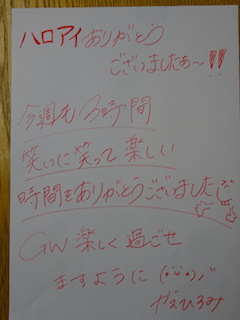 ハロアイありがとう
ございましたぁ〜!!
今週も3時間
笑いに笑って楽しい
時間をありがとうございました
GW楽しく過ごせ
ますように
やえひろみ